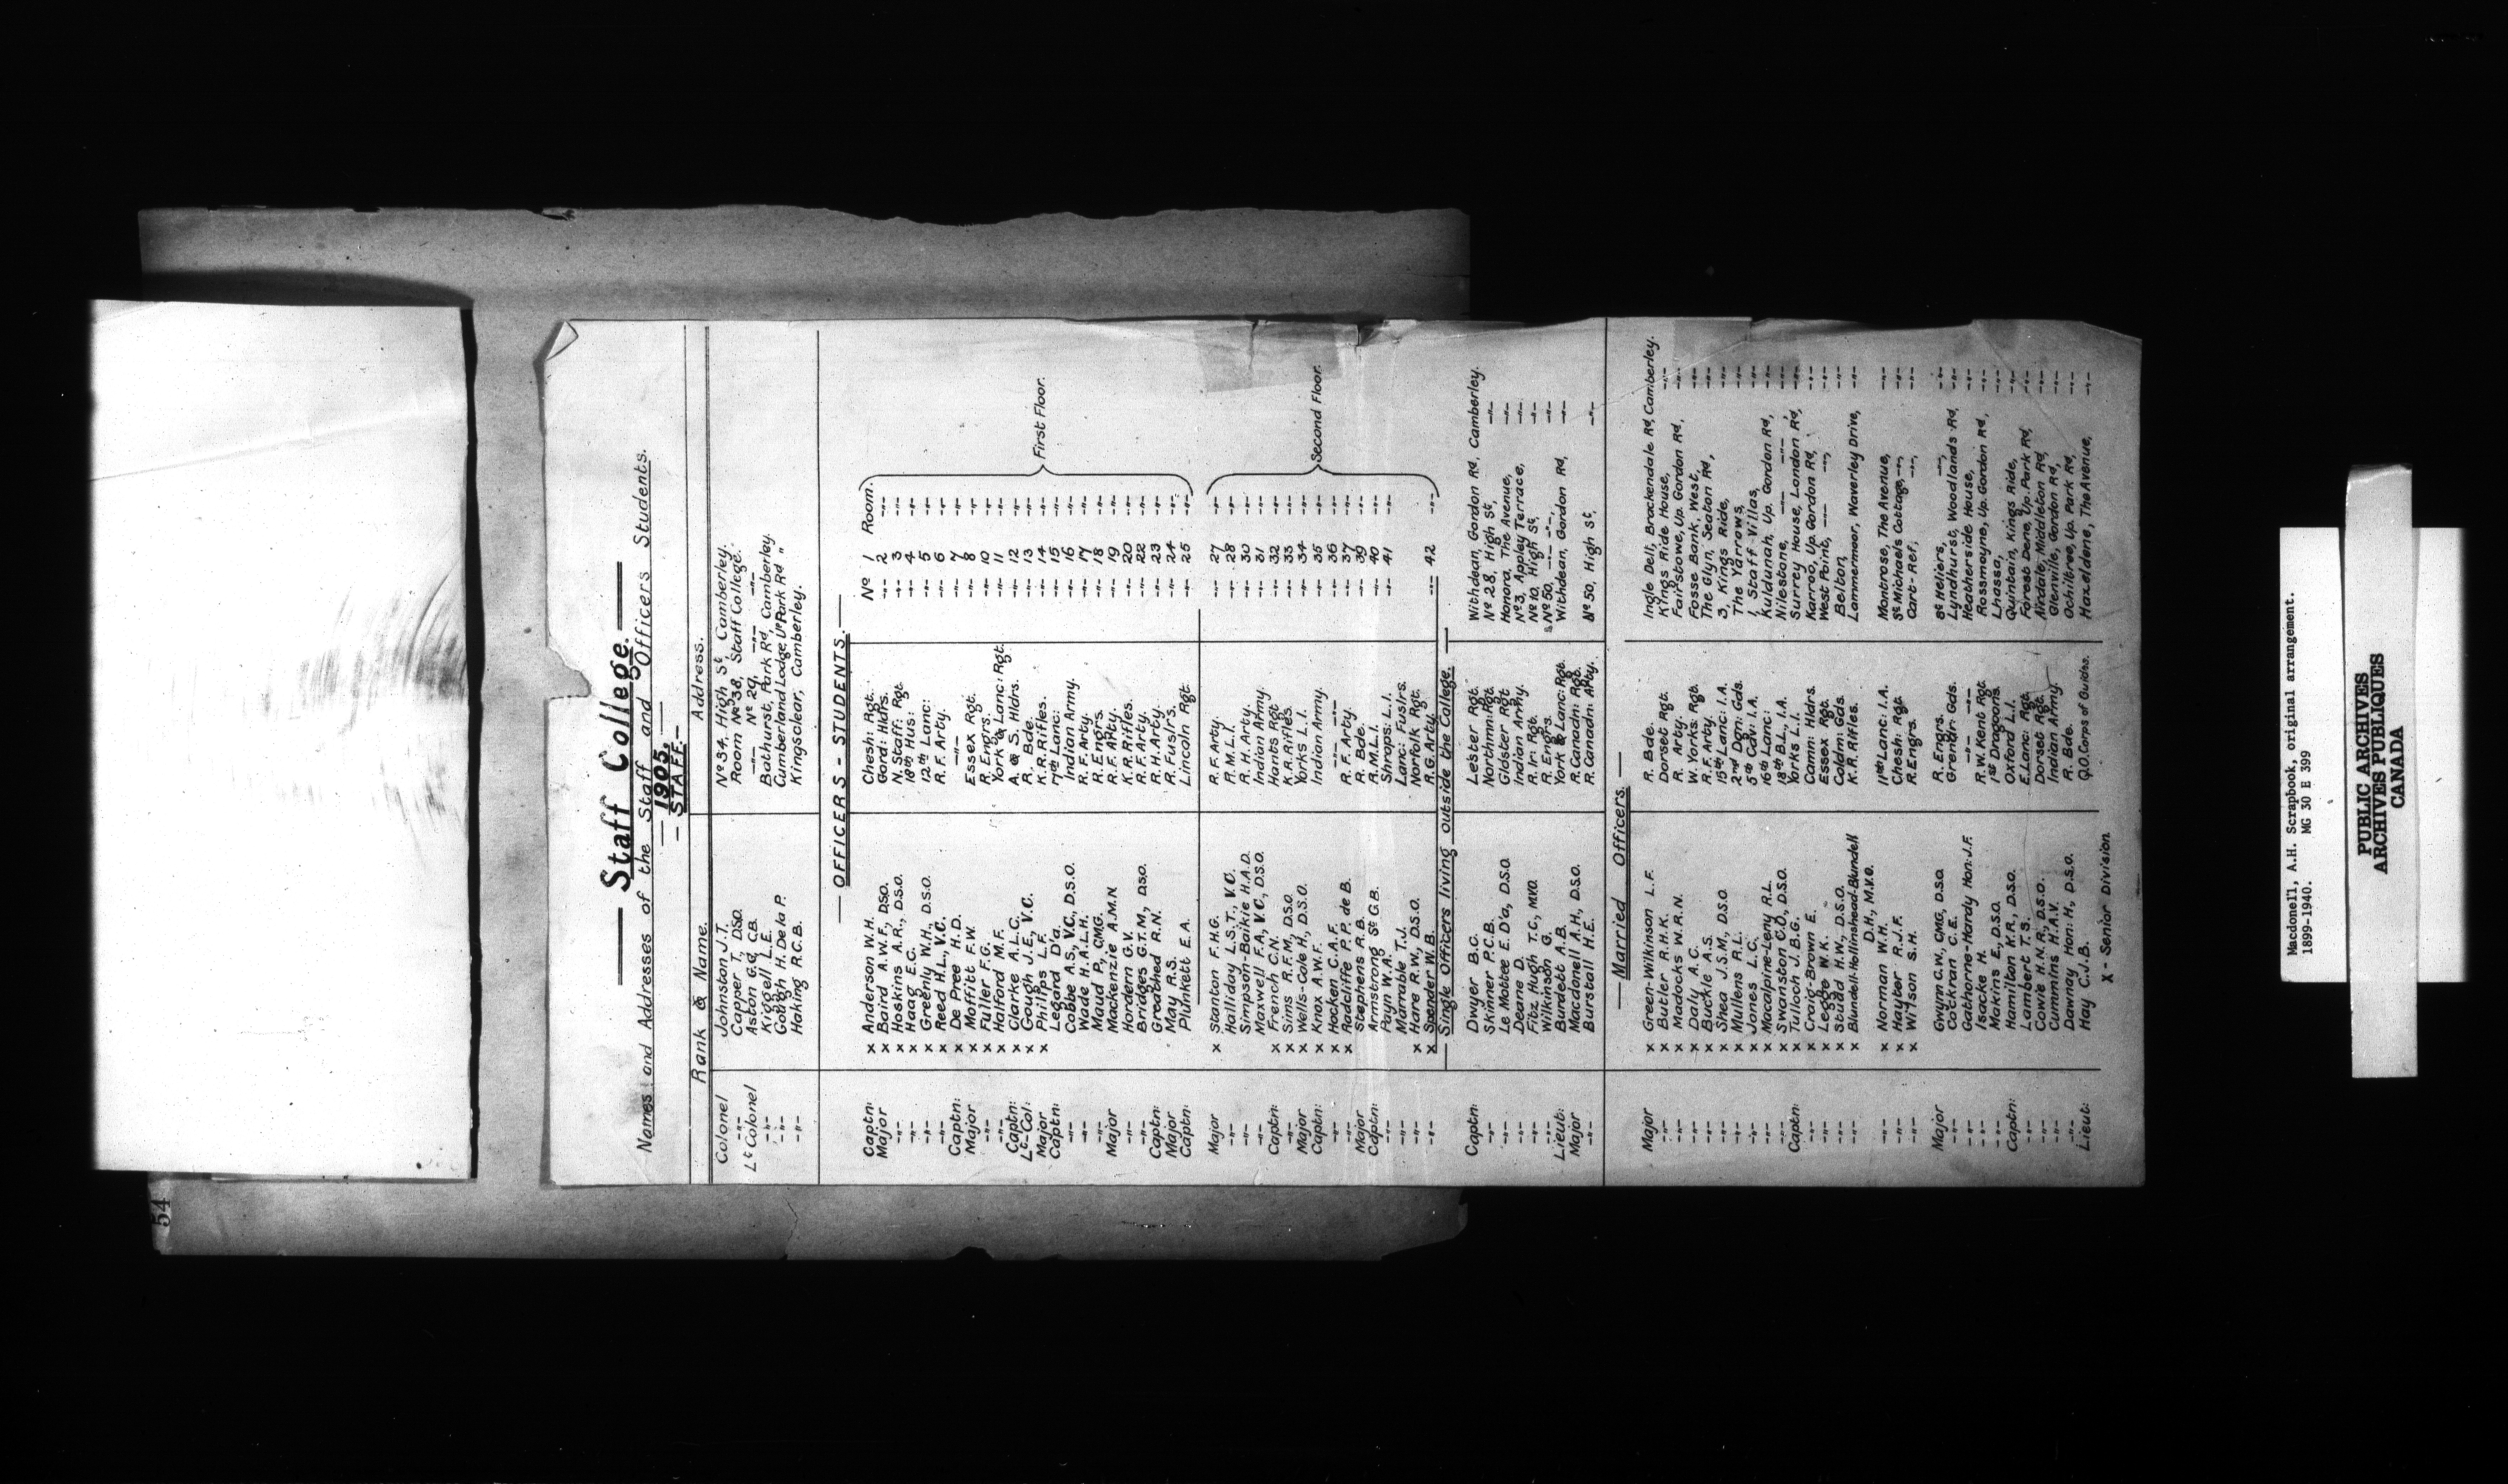 54
Staff College.
Names and Addresses of the Staff and Officers Students.
1905.
- STAFF. -
Rank & Name. Address.
Colonel Johnston J.T. Nº 34, High St, Camberley.
-"- Capper T., D.S.O. Room Nº 38, Staff College.
Lt Colonel Aston G.G. CB. -"- Nº 29, -"- -"-
-"- Kiggell L.E. Bathurst, Park Rd, Camberley.
-"- Gough H. De la P. Cumberland Lodge, Up Park Rd "
-"- Haking R.C.B. Kingsclear, Camberley.
OFFICERS - STUDENTS.
Captn: x Anderson W.H. Chesh: Rgt. Nº 1 Room.
Major x Baird A.W.F., D.S.O. Gord: Hldrs. -"- 2 -"-
-"- x Hoskins A.R., D.S.O. N. Staff: Rgt -"- 3 -"-
-"- x Haig E.C. 18th Hus: -"- 4 -"-
-"- x Greenly W.H., D.S.O. 12th Lanc: -"- 5 -"-
-"- x Reed H.L., V.C. R.F. Arty. -"- 6 -"-
Captn: x De Pree H.D. -"- -"- 7 -"-
Major x Moffitt F.W. Essex Rgt. -"- 8 -"-
-"- x Fuller F.G. R. Engrs. -"- 10 -"-
-"- x Halford M.F. York & Lanc: Rgt. -"- 11 -"-
Captn: x Clarke A.L.C. A. & S. Hldrs. -"- 12 -"-
Lt-Col: x Gough J.E., V.C. R. Bde. -"- 13 -"- First Floor.
Major x Phillips L.F. K.R. Rifles. -"- 14 -"-
Captn: Legard D'a. 17th Lanc: -"- 15 -"-
-"- Cobbe A.S., V.C., D.S.O. Indian Army. -"- 16 -"-
-"- Wade H.A.L.H. R.F. Arty. -"- 17 -"-
-"- Maud P., CMG. R. Engrs. -"- 18 -"-
Major Mackenzie A.M.N. R.F. Arty. -"- 19 -"-
-"- Hordern G.V. K.R. Rifles. -"- 20 -"-
-"- Bridges G.T.M., D.S.O. R.F. Arty. -"- 22 -"-
Captn: Greathed R.N. R.H. Arty. -"- 23 -"-
Major May R.S. R. Fuslrs. -"- 24 -"-
Captn: Plunkett E.A. Lincoln Rgt. -"- 25 -"-
Major x Stanton F.H.G. R.F. Arty. -"- 27 -"-
-"- Halliday L.S.T., V.C. R.M.L.I. -"- 28 -"-
-"- Simpson-Baikie H.A.D. R.H. Arty. -"- 30 -"-
-"- Maxwell F.A., V.C., D.S.O. Indian Army. -"- 31 -"-
Captn: x French C.N. Hants Rgt -"- 32 -"-
-"- x Sims R.F.M., D.S.O K.R. Rifles. -"- 33 -"-
Major x Wells-Cole H., D.S.O. Yorks L.I. -"- 34 -"-
Captn: x Knox A.W.F. Indian Army. -"- 35 -"- Second Floor.
-"- x Hocken C.A.F. -"- -"- -"- 36 -"-
-"- x Radcliffe P.P. de B. R.F. Arty. -"- 37 -"-
Major Stephens R.B. R. Bde. -"- 39 -"-
Captn: Armstrong St G.B. R.M.L.I. -"- 40 -"-
-"- Payn W.A. Shrops: L.I. -"- 41 -"-
-"- Marrable T.J. Lanc: Fuslrs.
-"- x Hare R.W., D.S.O. Norfolk Rgt.
-"- x Spender W.B. R.G. Arty. -"- 42 -"-
Single Officers living outside the College.
Captn: Dwyer B.C. Lester Rgt. Withdean, Gordon Rd, Camberley.
-"- Skinner P.C.B. Northmn: Rgt. Nº 28, High St, -"-
-"- Le Mottee E. D'a, D.S.O. Gldster Rgt Honora, The Avenue, -"-
-"- Deane D. Indian Army. Nº 3, Appley Terrace, -"-
-"- Fitz Hugh T.C., MVO. R. Ir: Rgt. Nº 10, High St, -"-
-"- Wilkinson G. R. Engrs. Nº 50, -"- -"-, -"-
Lieut: Burdett A.B. York & Lanc: Rgt. Withdean, Gordon Rd, -"-
Major Macdonell A.H., D.S.O R. Canadn: Rgt.
-"- Burstall H.E. R. Canadn: Arty. Nº 50, High St, -"-
Married Officers.
Major x Green-Wilkinson L.F. R. Bde. Ingle Dell, Brackendale Rd, Camberley.
-"- x Butler R.H.K. Dorset Rgt. Kings Ride House, -"-
-"- x Madocks W.R.N. R. Arty. Fairstowe, Up. Gordon Rd, -"-
-"- x Daly A.C. W. Yorks: Rgt. Fosse Bank, West, -"-
-"- x Buckle A.S. R.F. Arty. The Glyn, Seaton Rd, -"-
-"- x Shea J.S.M., D.S.O 15th Lanc: I.A. 3, Kings Ride, -"-
-"- x Mullens R.L. 2nd Dgn: Gds. The Yarrows, -"-
-"- x Jones L.C. 5th Cav: I.A. 1, Staff Villas, -"-
-"- x Macalpine-Leny R.L. 16th Lanc: Kuldunah, Up. Gordon Rd, -"-
-"- x Swanston C.O., D.S.O. 18th B.L., I.A. Nilestone, -"- -"-, -"-
Captn: x Tulloch J.B.G. Yorks L.I. Surrey House, London Rd, -"-
-"- x Craig-Brown E. Cam: Hldrs. Karroo, Up. Gordon Rd, -"-
-"- x Legge W.K. Essex Rgt. West Point, -"- -"-, -"-
-"- x Studd H.W., D.S.O. Coldm: Gds. Belton, -"-
-"- x Blundell-Hollinshead-Blundell K.R. Rifles. Lammermoor, Waverley Drive, -"-
D.H., M.V.O.
-"- x Norman W.H. 11th Lanc: I.A. Montrose, The Avenue, -"-
-"- x Hayter R.J.F. Chesh: Rgt. St Michaels Cottage, -"-, -"-
-"- x Wilson S.H. R. Engrs. Cart-Ref, -"-, -"-
Major Gwynn C.W., CMG, D.S.O R. Engrs. St Heliers, -"-, -"-
-"- Cockran C.E. Grendr: Gds. Lyndhurst, Woodlands Rd, -"-
-"- Gathorne-Hardy Hon: J.F. -"- -"- Heatherside House, -"-
-"- Isacke H. R.W. Kent Rgt. Rossmoyne, Up. Gordon Rd, -"-
-"- Makins E., D.S.O 1st Dragoons. Lhassa, -"-
Captn: Hamilton K.R., D.S.O. Oxford L.I. Quintain, Kings Ride, -"-
-"- Lambert T.S. E. Lanc: Rgt. Forest Dene, Up. Park Rd, -"-
-"- Cowie H.N.R., D.S.O. Dorset Rgt. Airdale, Middleton Rd, -"-
-"- Cummins H.A.V. Indian Army. Glenville, Gordon Rd, -"-
-"- Dawnay Hon: H., D.S.O. R. Bde. Ochilbree, Up. Park Rd, -"-
Lieut: Hay C.J.B. Q.O. Corps of Guides. Hazeldene, The Avenue, -"-
x - Senior Division
Macdonell, A.H. Scrapbook, original arrangement.
1899-1940. MG 30 E 399
PUBLIC ARCHIVES
ARCHIVES PUBLIQUES
CANADA